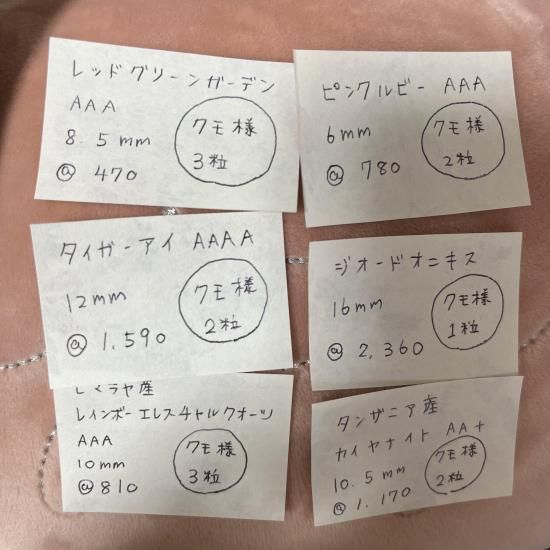 レッドグリーンガーデン
AAA
8.5mm
@ 470
クモ様
3粒
ピンクルビー AAA
6mm
@ 780
クモ様
2粒
タイガーアイ AAAA
12mm
@ 1,590
クモ様
2粒
ジオードオニキス
16mm
@ 2,360
クモ様
1粒
ヒマラヤ産
レインボーエレスチャルクオーツ
AAA
10mm
@ 810
クモ様
3粒
タンザニア産
カイヤナイト AA+
10.5mm
@ 1,170
クモ様
2粒